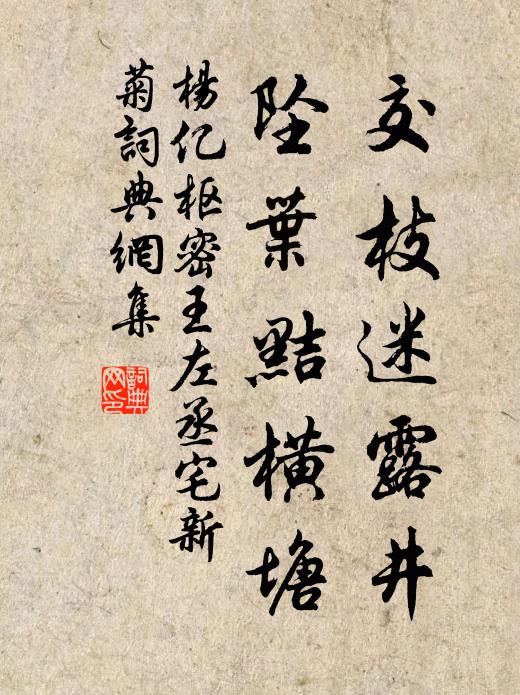 交枝迷露井
坠葉點橫塘
楊亿枢密王左丞宅新
菊詞典網集
詞典
网印